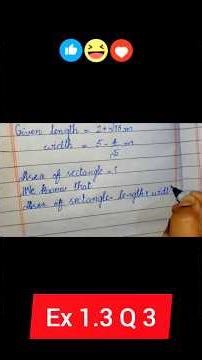 Given length = 2+√18 m
width = 5 - 4/√5 m
Area of rectangle = ?
We know that
Area of rectangle = length × width
Ex 1.3 Q 3